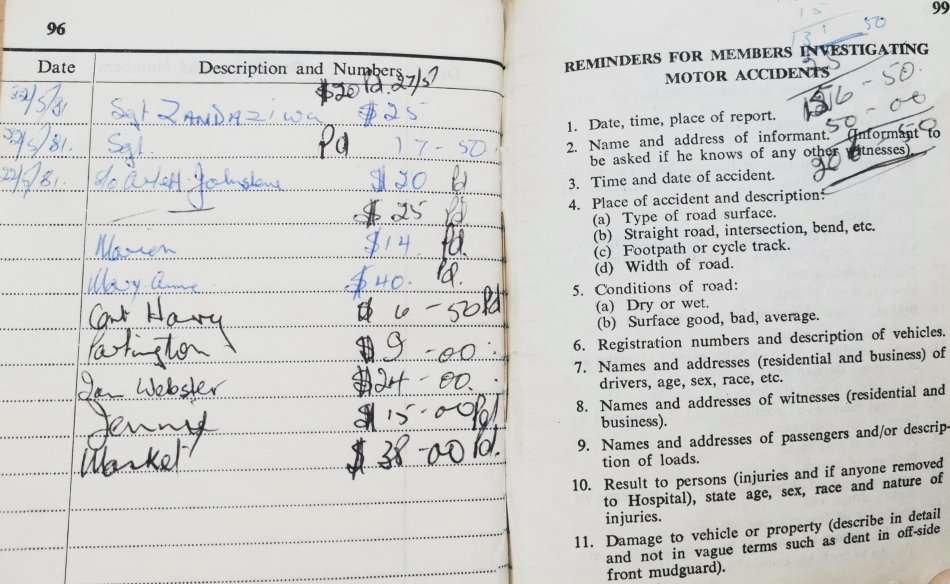 96
Date Description and Numbers
$20 Pd. 27/5
22/5/81 Sgt ZANDAZIWA $25
22/5/81. Sgt Pd 17-50
22/5/81. Johnstone $20 Pd
$25 Pd
Marion $14 Pd.
Mary Anne $40. Pd.
Harry $6-50 Pd
Partington $9-00
Ian Webster $24-00.
Jenny $15-00 Pd
Market $38-00 Pd.
99
15
50
REMINDERS FOR MEMBERS INVESTIGATING
MOTOR ACCIDENTS
25
16-50.
50-00
1. Date, time, place of report.
2. Name and address of informant. (Informant to
be asked if he knows of any other witnesses).
3. Time and date of accident.
4. Place of accident and description:
(a) Type of road surface.
(b) Straight road, intersection, bend, etc.
(c) Footpath or cycle track.
(d) Width of road.
5. Conditions of road:
(a) Dry or wet.
(b) Surface good, bad, average.
6. Registration numbers and description of vehicles.
7. Names and addresses (residential and business) of
drivers, age, sex, race, etc.
8. Names and addresses of witnesses (residential and
business).
9. Names and addresses of passengers and/or descrip-
tion of loads.
10. Result to persons (injuries and if anyone removed
to Hospital), state age, sex, race and nature of
injuries.
11. Damage to vehicle or property (describe in detail
and not in vague terms such as dent in off-side
front mudguard).